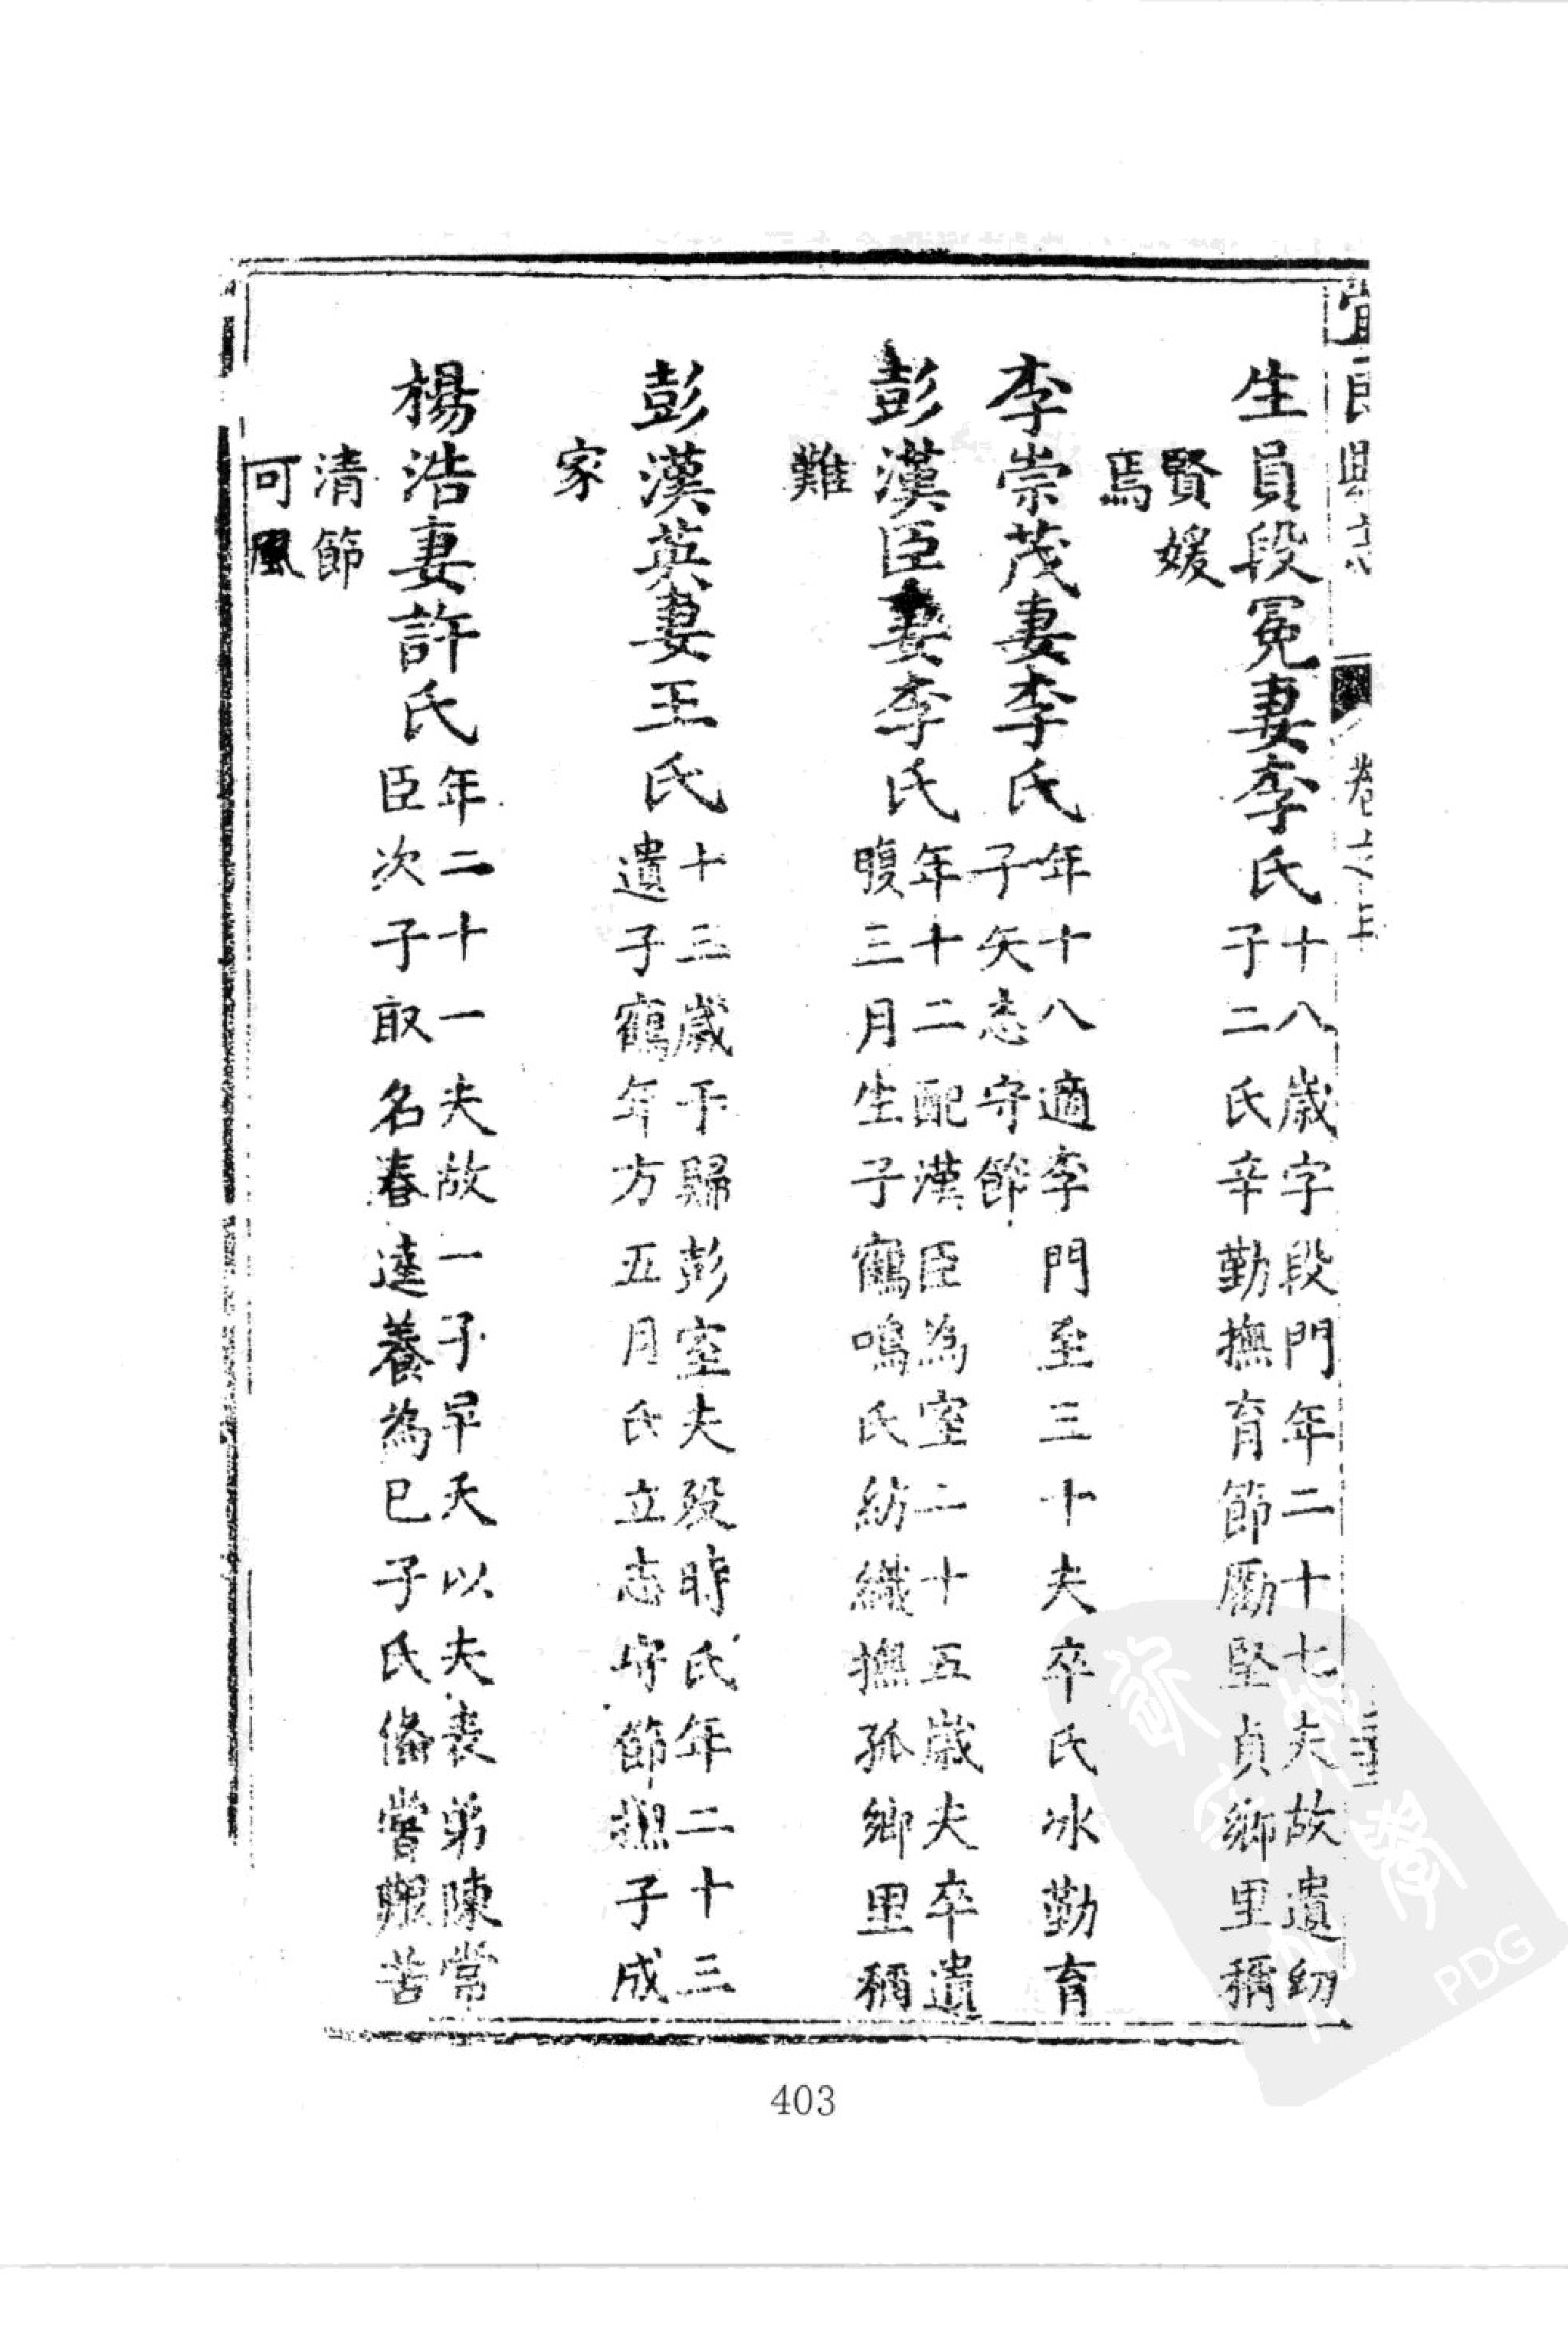 宜良縣志 卷之
生員段冕妻李氏
十八歲字段門年二十七夫故遺幼
子二氏辛勤撫育節勵堅貞鄉里稱
賢媛
焉
李崇茂妻李氏
年十八適李門至三十夫卒氏冰勤育
子矢志守節
彭漢臣妻李氏
年十二配漢臣為室二十五歲夫卒遺
腹三月生子鶴鳴氏紡織撫孤鄉里稱
難
彭漢英妻王氏
十三歲于歸彭室夫歿時氏年二十三
遺子鶴年方五月氏立志守節撫子成
家
楊浩妻許氏
年二十一夫故一子早夭以夫表弟陳常
臣次子取名春達養為已子氏偹嘗艱苦
清節
可風
403
PDG